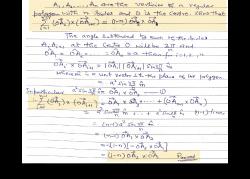 A₁, A₂, ..., Aₙ are the vertices of a regular
polygon with n sides and O is the centre. Show that
Σ (OAᵢ × OAᵢ₊₁) = (1-n)(OA₂ × OA₁)
The angle subtended by each of the sides
A₁, Aᵢ₊₁ at the centre O will be 2π/n and
OA₁ = OA₂ = ... OAₙ = a then
OAᵢ × OAᵢ₊₁ = |OAᵢ| |OAᵢ₊₁| sin 2π/n n̂
Where n̂ = unit vector ⊥ the plane of the polygon
= a² sin 2π/n n̂
In particular a² sin 2π/n n̂ = OA₁ × OA₂
Σ (OAᵢ × OAᵢ₊₁) = OA₁ × OA₂ + ... + (OAₙ₋₁ × OAₙ)
= a² sin 2π/n n̂ + ... + a² sin 2π/n n̂ (n-1) times
= (n-1) a² sin 2π/n n̂
= (n-1) OA₁ × OA₂
= -(n-1)[-OA₂ × OA₁]
= (1-n) OA₂ × OA₁ Proved